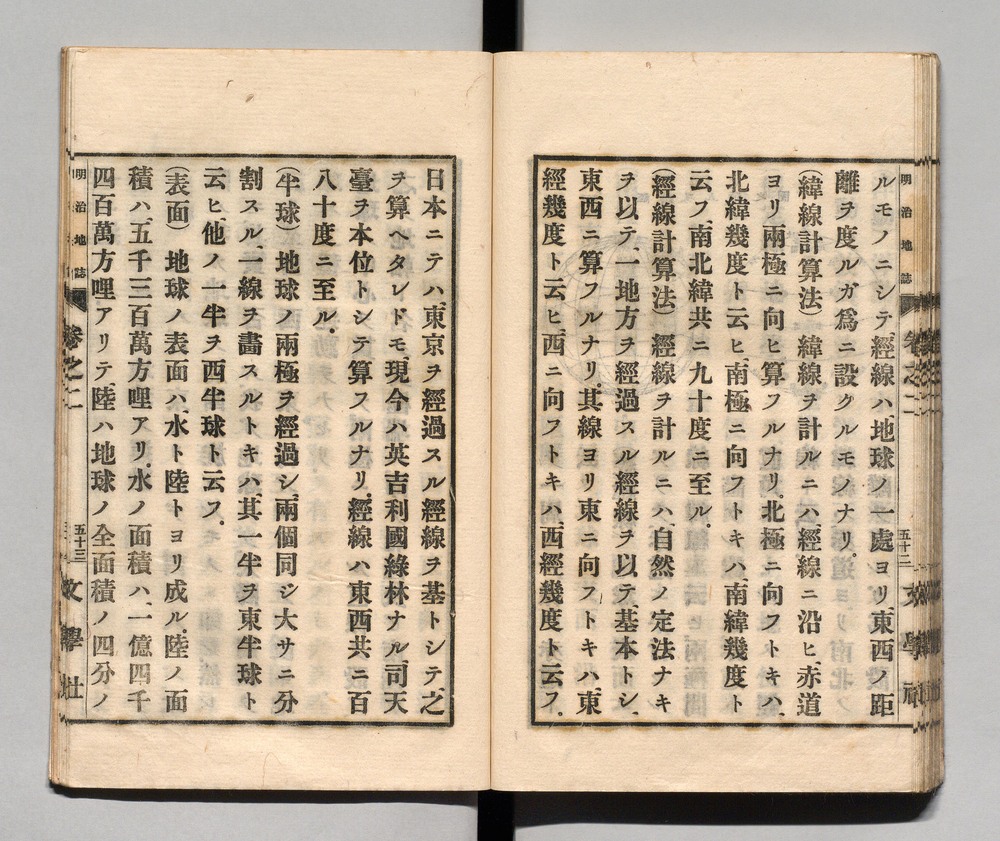 明治地誌
卷之二
五十二
文學社
ルモノニシテ、經線ハ、地球ノ一處ヨリ、東西ノ距
離ヲ度ルガ爲ニ設クルモノナリ。
(緯線計算法) 緯線ヲ計ルニハ、經線ニ沿ヒ、赤道
ヨリ兩極ニ向ヒ算フルナリ。北極ニ向フトキハ、
北緯幾度ト云ヒ、南極ニ向フトキハ、南緯幾度ト
云フ、南北緯共ニ九十度ニ至ル。
(經線計算法) 經線ヲ計ルニハ、自然ノ定法ナキ
ヲ以テ、一地方ヲ經過スル經線ヲ以テ、基本トシ、
東西ニ算フルナリ。其線ヨリ東ニ向フトキハ、東
經幾度ト云ヒ、西ニ向フトキハ、西經幾度ト云フ。
日本ニテハ、東京ヲ經過スル經線ヲ基トシテ、之
ヲ算ヘタレドモ、現今ハ英吉利國綠林ナル、司天
臺ヲ本位トシテ算フルナリ。經線ハ東西共ニ百
八十度ニ至ル。
(半球) 地球ノ兩極ヲ經過シ、兩個同ジ大サニ分
割スル、一線ヲ畫スルトキハ、其一半ヲ東半球ト
云ヒ、他ノ一半ヲ西半球ト云フ。
(表面) 地球ノ表面ハ、水ト陸トヨリ成ル。陸ノ面
積ハ、五千三百萬方哩アリ。水ノ面積ハ、一億四千
四百萬方哩アリテ、陸ハ地球ノ全面積ノ四分ノ
明治地誌
卷之二
五十三
文學社